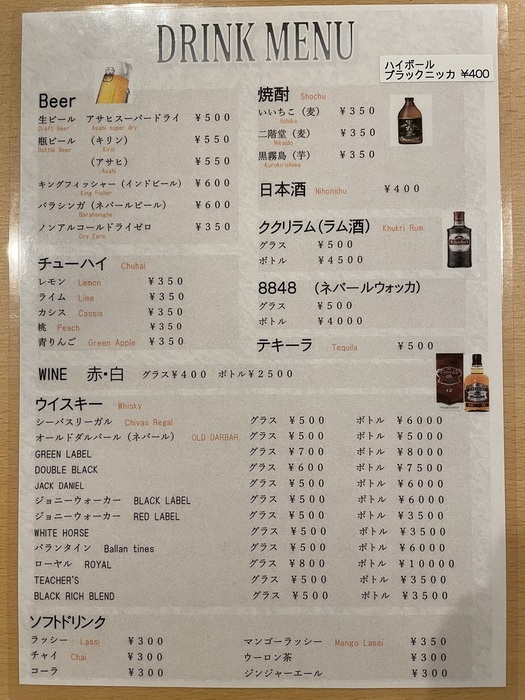 DRINK MENU
ハイボール
ブラックニッカ ¥400
Beer
生ビール アサヒスーパードライ ¥500
Draft Beer Asahi super dry
瓶ビール (キリン) ¥550
Bottle Beer Kirin
(アサヒ) ¥550
Asahi
キングフィッシャー(インドビール) ¥600
King Fisher
バラシンガ(ネパールビール) ¥600
Barahsingha
ノンアルコールドライゼロ ¥350
Dry Zero
チューハイ Chuhai
レモン Lemon ¥350
ライム Lime ¥350
カシス Cassis ¥350
桃 Peach ¥350
青りんご Green Apple ¥350
焼酎 Shochu
いいちこ(麦) ¥350
Iichiko
二階堂(麦) ¥350
Nikaido
黒霧島(芋) ¥350
Kurokirishima
日本酒 Nihonshu ¥400
ククリラム(ラム酒) Khukri Rum
グラス ¥500
ボトル ¥4500
8848 (ネパールウォッカ)
グラス ¥500
ボトル ¥4000
テキーラ Tequila ¥500
WINE 赤・白 グラス¥400 ボトル¥2500
ウイスキー Whisky
シーバスリーガル Chivas Regal グラス ¥500 ボトル ¥6000
オールドダルバール(ネパール) OLD DARBAR グラス ¥500 ボトル ¥5000
GREEN LABEL グラス ¥700 ボトル ¥8000
DOUBLE BLACK グラス ¥600 ボトル ¥7500
JACK DANIEL グラス ¥500 ボトル ¥6000
ジョニーウォーカー BLACK LABEL グラス ¥500 ボトル ¥6000
ジョニーウォーカー RED LABEL グラス ¥500 ボトル ¥3500
WHITE HORSE グラス ¥500 ボトル ¥3500
バランタイン Ballan tines グラス ¥500 ボトル ¥6000
ローヤル ROYAL グラス ¥800 ボトル ¥10000
TEACHER'S グラス ¥500 ボトル ¥3500
BLACK RICH BLEND グラス ¥500 ボトル ¥3500
ソフトドリンク
ラッシー Lassi ¥300 マンゴーラッシー Mango Lassi ¥350
チャイ Chai ¥300 ウーロン茶 ¥300
コーラ ¥300 ジンジャーエール ¥300